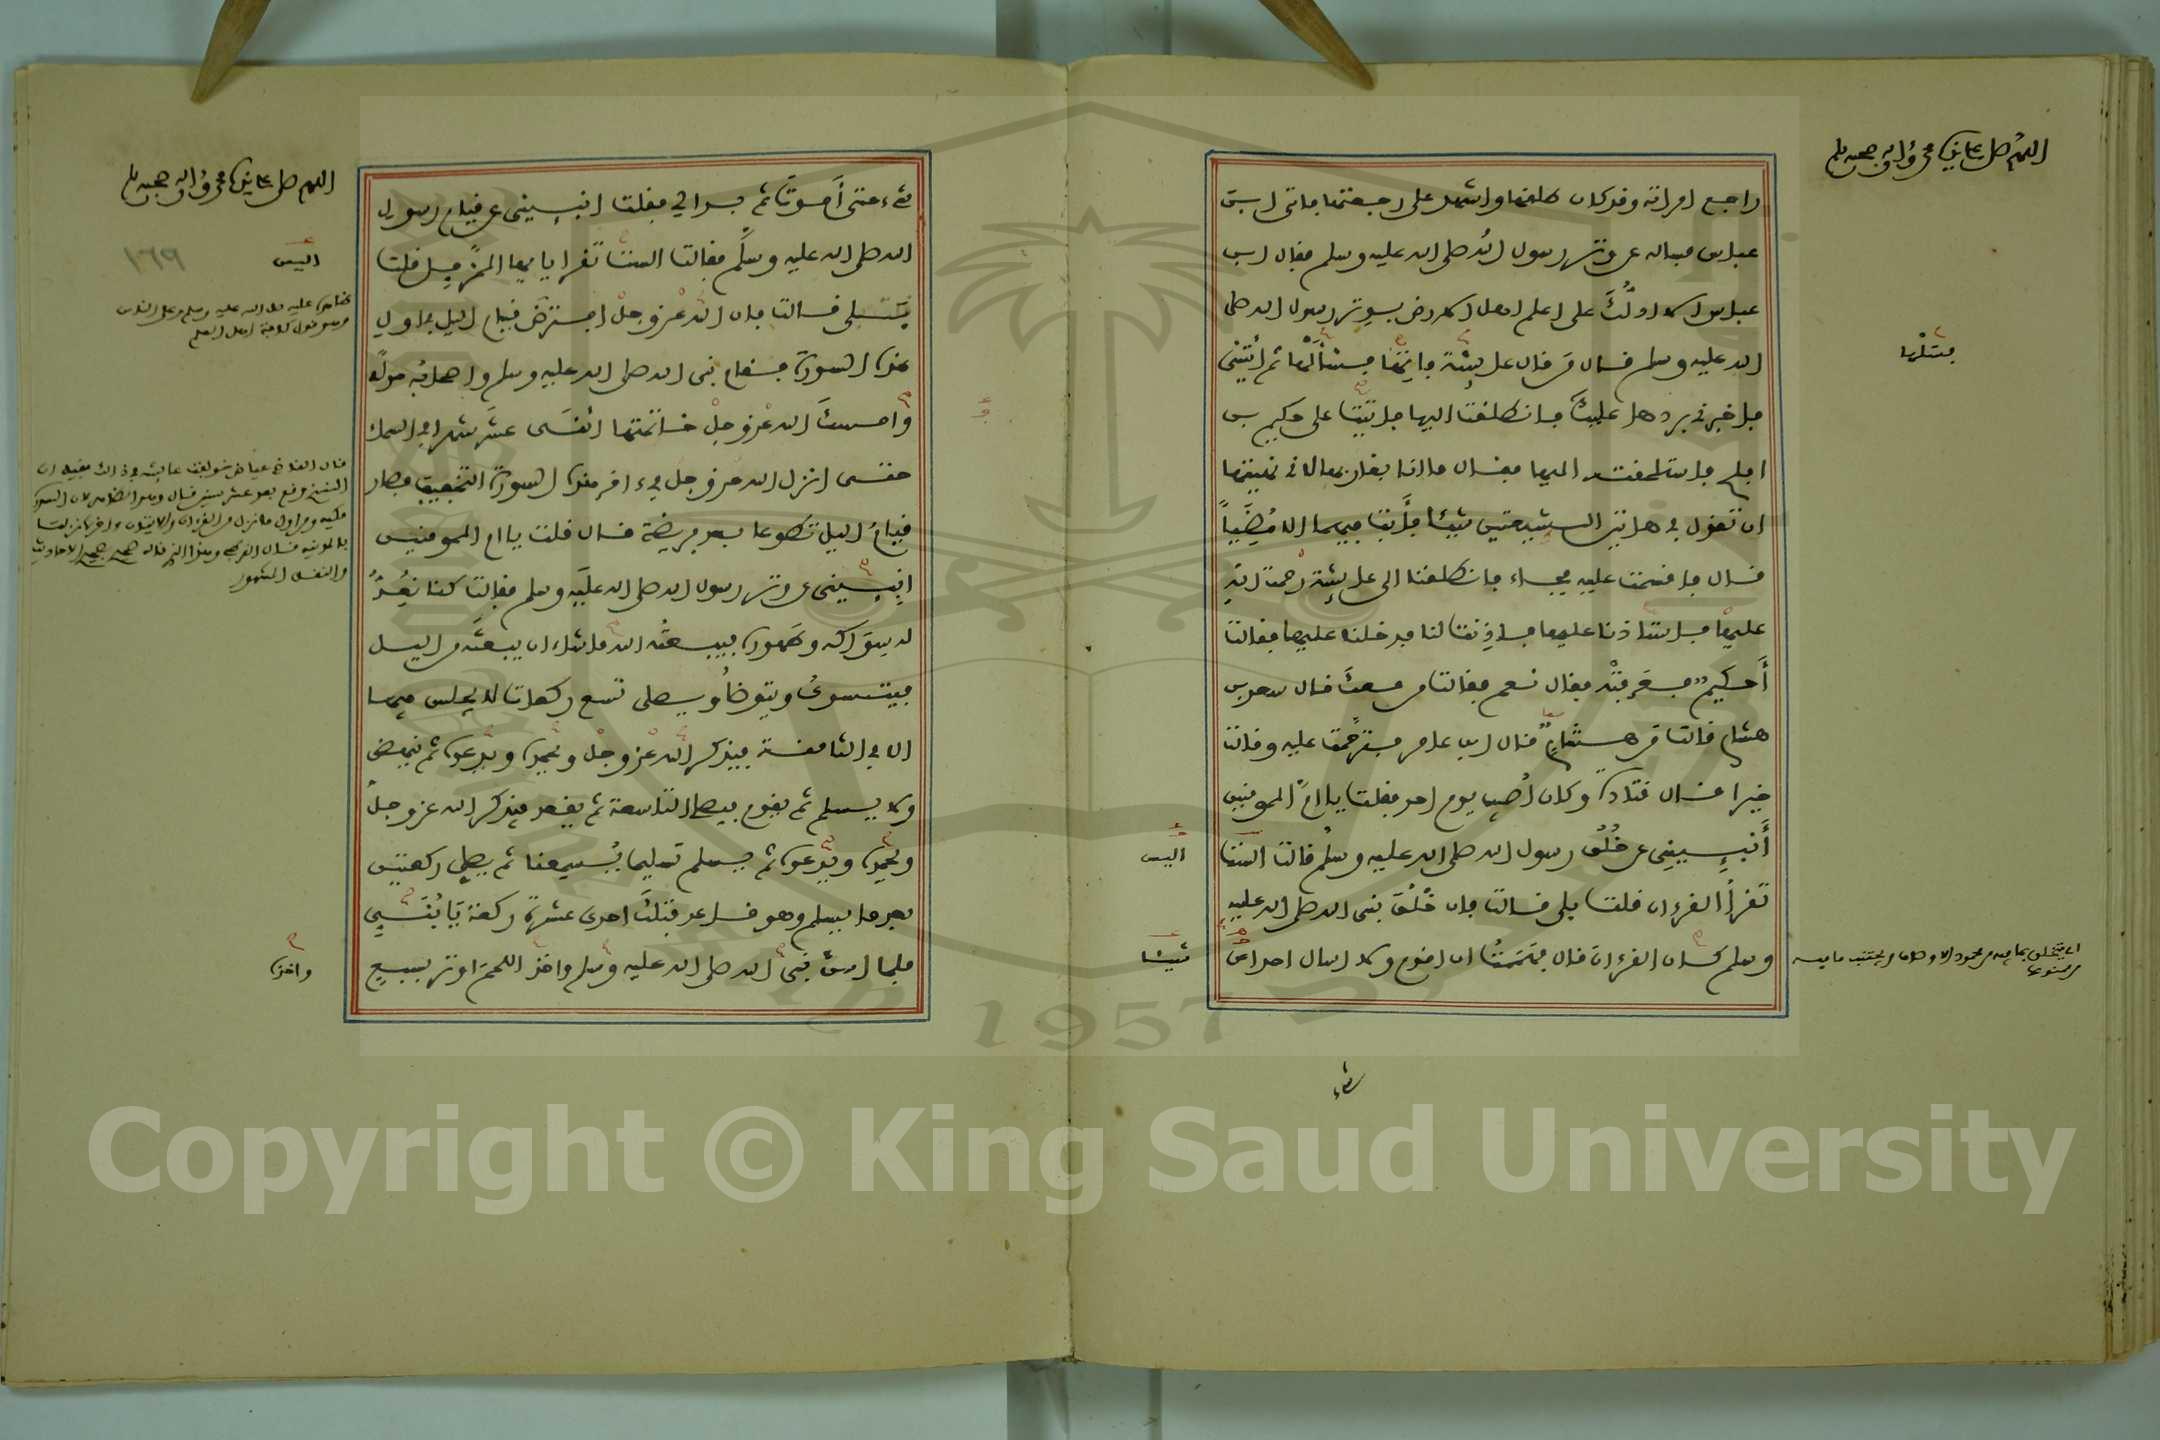 اللهم صل على سيدنا محمد وءاله وصحبه وسلم
راجع امراته وقد كان طلقها واشهد على رجعتها فاتى ابن
عباس فساله عن وتر رسول الله صلى الله عليه وسلم فقال ابن
عباس الا ادلك على اعلم اهل الارض بوتر رسول الله صلى
الله عليه وسلم قال من قال عايشة فايتها فسئلها ثم ائتنى
فاخبرنى بردها عليك فانطلقت اليها فاتيت على حكيم بن
افلح فاستلحقته اليها فقال ما انا بقاربها لانى نهيتها
ان تقول فى هاتين الشيعتين شيئا فأبت فيهما الا مضيا
قال فاقسمت عليه فجاء فانطلقنا الى عايشة رحمة الله
عليها فاستاذنا عليها فاذنت لنا فدخلنا عليها فقالت
أحكيم فعرفته فقال نعم فقالت من معك قال سعد بن
هشام قالت من هشام قال ابن عامر فترحمت عليه وقالت
خيرا قال قتادة وكان اصيب يوم احد فقلت يا ام المومنين
أنبيينى عن خلق رسول الله صلى الله عليه وسلم قالت الست
تقرأ القرءان قلت بلى قالت فان خلق نبى الله صلى الله عليه
وسلم كان القرءان قال فهممت ان اقوم ولا اسال احدا عن
فسئلها
اليس
شيئا
شىء
اللهم صل على سيدنا محمد وءاله وصحبه وسلم
١٦٩
شىء حتى أموت ثم بدا لى فقلت انبيينى عن قيام رسول
الله صلى الله عليه وسلم فقالت الست تقرا يايها المزمل قلت
بلى قالت فان الله عز وجل افترض قيام اليل فى اول
هذه السورة فقام نبى الله صلى الله عليه وسلم واصحابه حولا
وامسك الله عز وجل خاتمتها اثنى عشر شهرا فى السماء
حتى انزل الله عز وجل فى ءاخر هذه السورة التخفيف فصار
قيام اليل تطوعا بعد فريضة قال قلت يا ام المومنين
انبيينى عن وتر رسول الله صلى الله عليه وسلم فقالت كنا نعد
له سواكه وطهوره فيبعثه الله ما شاء ان يبعثه من اليل
فيتسوك ويتوضأ ويصلى تسع ركعات لا يجلس فيها
الا فى الثامنة فيذكر الله عز وجل ويحمده ويدعوه ثم ينهض
ولا يسلم ثم يقوم فيصلى التاسعة ثم يقعد فيذكر الله عز وجل
ويحمده ويدعوه ثم يسلم تسليما يسمعنا ثم يصلى ركعتين
بعد ما يسلم وهو قاعد فتلك احدى عشرة ركعة يا بنى
فلما اسن نبى الله صلى الله عليه وسلم واخذ اللحم اوتر بسبع
اليس
قال القاضى عياض
واخذه